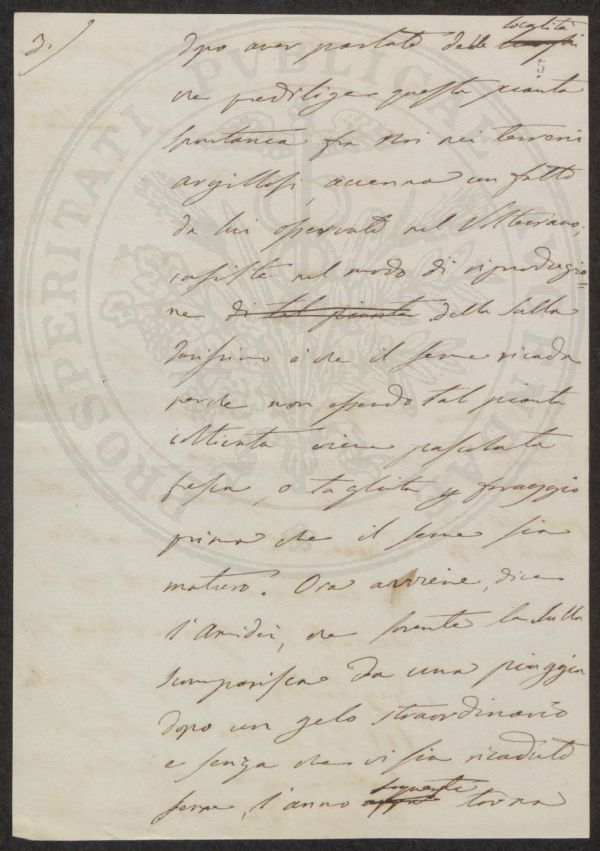 3.)
località
dopo aver parlato delle luoghi
5
che predilige questa pianta
spontanea fra Noi nei terreni
argillosi, accenna un fatto
da lui osservato nel Volterrano;
consiste nel modo di riproduzio=
ne di tal pianta della Sulla
Rarissimo è che il seme ricada
perche non essendo tal pianta
coltivata viene pascolata
fresca, o tagliata p foraggio
prima che il seme sia
maturo. Ora avviene, dice
l'Amidei, che sovente la Sulla
scomparisca da una piaggia
dopo un gelo straordinario
e senza che vi sia ricaduto
seguente
seme, l'anno torna
PROSPERITATI PUBLICAE AUGENDAE